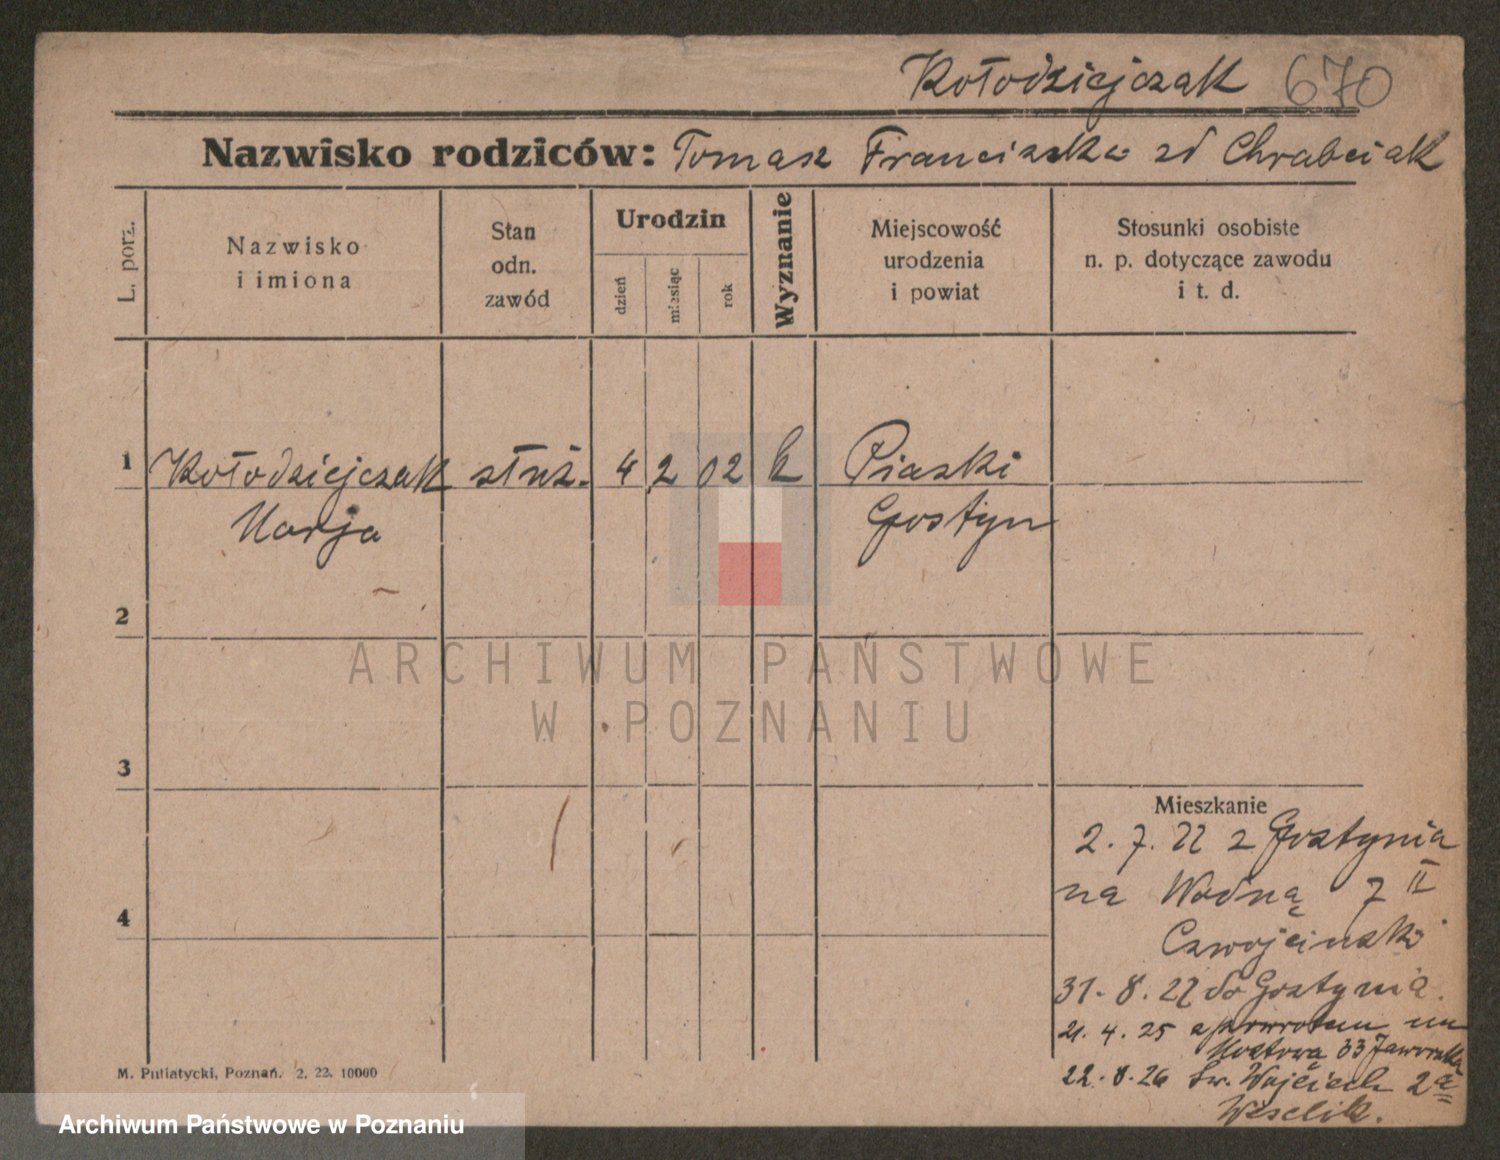 Kołodziejczak 670
Nazwisko rodziców: Tomasz Franciszka zd Chrabciak
L. porz.
Nazwisko i imiona
Stan odn. zawód
Urodzin
dzień
miesiąc
rok
Wyznanie
Miejscowość urodzenia i powiat
Stosunki osobiste n. p. dotyczące zawodu i t. d.
1 Kołodziejczak służ. 4 2 02 k Piaski
Marja Gostyn
2
3
4
Mieszkanie
2. 7. 22 z Gostynia
na Wodną 7 II
Czwojcinski
31. 8. 22 do Gostynia.
21. 4. 25 z powrotem na
Mostowa 33 Jaworska
22. 8. 26 Św. Wojciech 2a
Weselik.
M. Putiatycki, Poznań. 2. 22. 10000
ARCHIWUM PAŃSTWOWE
W POZNANIU
Archiwum Państwowe w Poznaniu